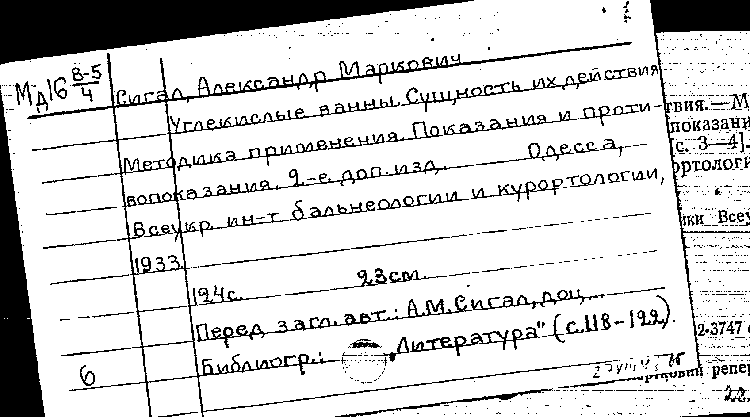 МД16 В-5/4
Сигал, Александр Маркович
Углекислые ванны. Сущность их действия
Методика применения. Показания и проти-
вопоказания. 2-е доп. изд. Одесса,
Всеукр. ин-т бальнеологии и курортологии,
1933
124с. 23см.
Перед загл. авт.: А.М.Сигал, доц...
Библиогр.: „Литература" (с.118-122).
6
твия.—М
показани
[с. 3—4].
ортологи
ики Всеу
2-3747
репер
22.